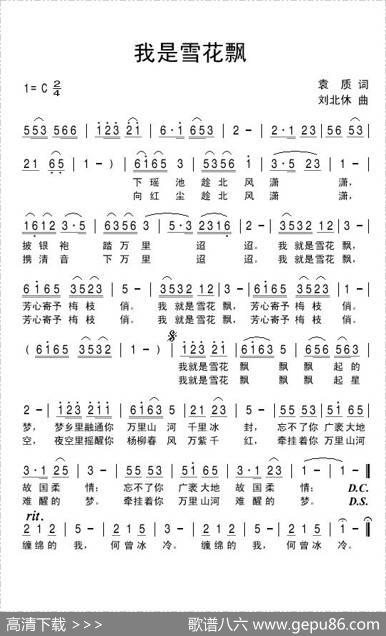 我是雪花飘
1= C 2/4
袁 质 词
刘北休 曲
553 566 | 123 21 | 6·1 653 | 2 - | 2·1 235 | 56 53 |
21 65 | 1 - ) | 6165 3 | 5356 1 | 3·5 23 | 1 - |
下瑶 池 趁北 风 潇 潇,
向红 尘 趁北 风 潇 潇,
1612 3·5 | 6356 3 | 5·3 2316 | 2 - | 123 532 | 12 3 |
披银 袍 踏万 里 迢 迢。 我 就是雪花 飘,
携清 音 下万 里 迢 迢。 我 就是雪花 飘,
6165 3523 | 1 - | 123 532 | 12 3 | 6165 3523 | 1 - |
芳心寄予 梅 枝 俏。 我 就是雪花 飘, 芳心寄予 梅 枝 俏。
芳心寄予 梅 枝 俏。 我 就是雪花 飘, 芳心寄予 梅 枝 俏。
( 6165 3532 | 1 - ) | 123 21 | 6163 5 | 656 563 |
我就是雪花 飘 飘 飘 起的
我就是雪花 飘 飘 飘 起星
2 - | 123 211 | 6163 5 | 6·1 653 | 2 - | 553 532 | 1235 2 |
梦, 梦乡里融通你 万里山 河 千里冰 封, 忘不了你 广袤大地
空, 夜空里摇醒你 杨柳春 风 万紫千 红, 牵挂着你 万里山河
3·1 25 | 3 - | 553 532 | 1235 2 | 3·1 22 | 1 - ‖
故 国柔 情; 忘不了你 广袤大地 故 国柔 情; D.C.
难 醒的 梦。 牵挂着你 万里山河 难 醒的 梦。 D.S.
rit.
512 3 | 2 - | 321 2 | 1 - | 512 3 | 2 - | 321 2 | 1 - ‖
缠绵的 我, 何曾冰 冷。 缠绵的 我, 何曾冰 冷。
高清下载 >>>
歌谱八六 www.gepu86.com